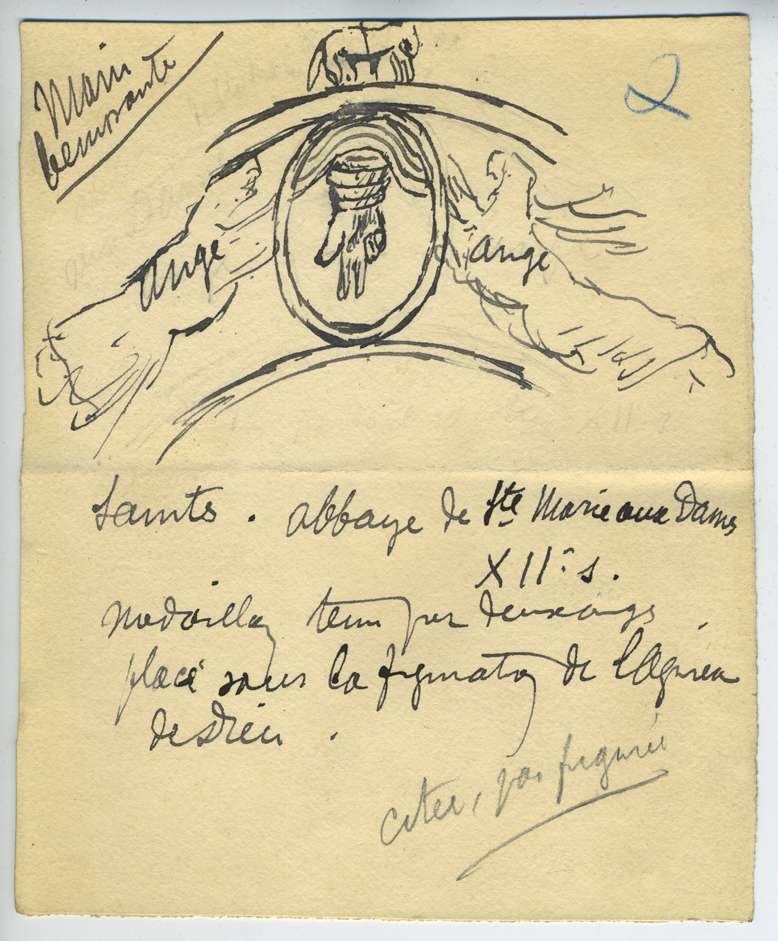 Main
bénissante
ange
ange
Saintes. abbaye de Ste Marie aux Dames
XIIe s.
médaillon tenu par deux anges,
placé sous la figuration de l'Agneau
de Dieu.
citer, pas figurer